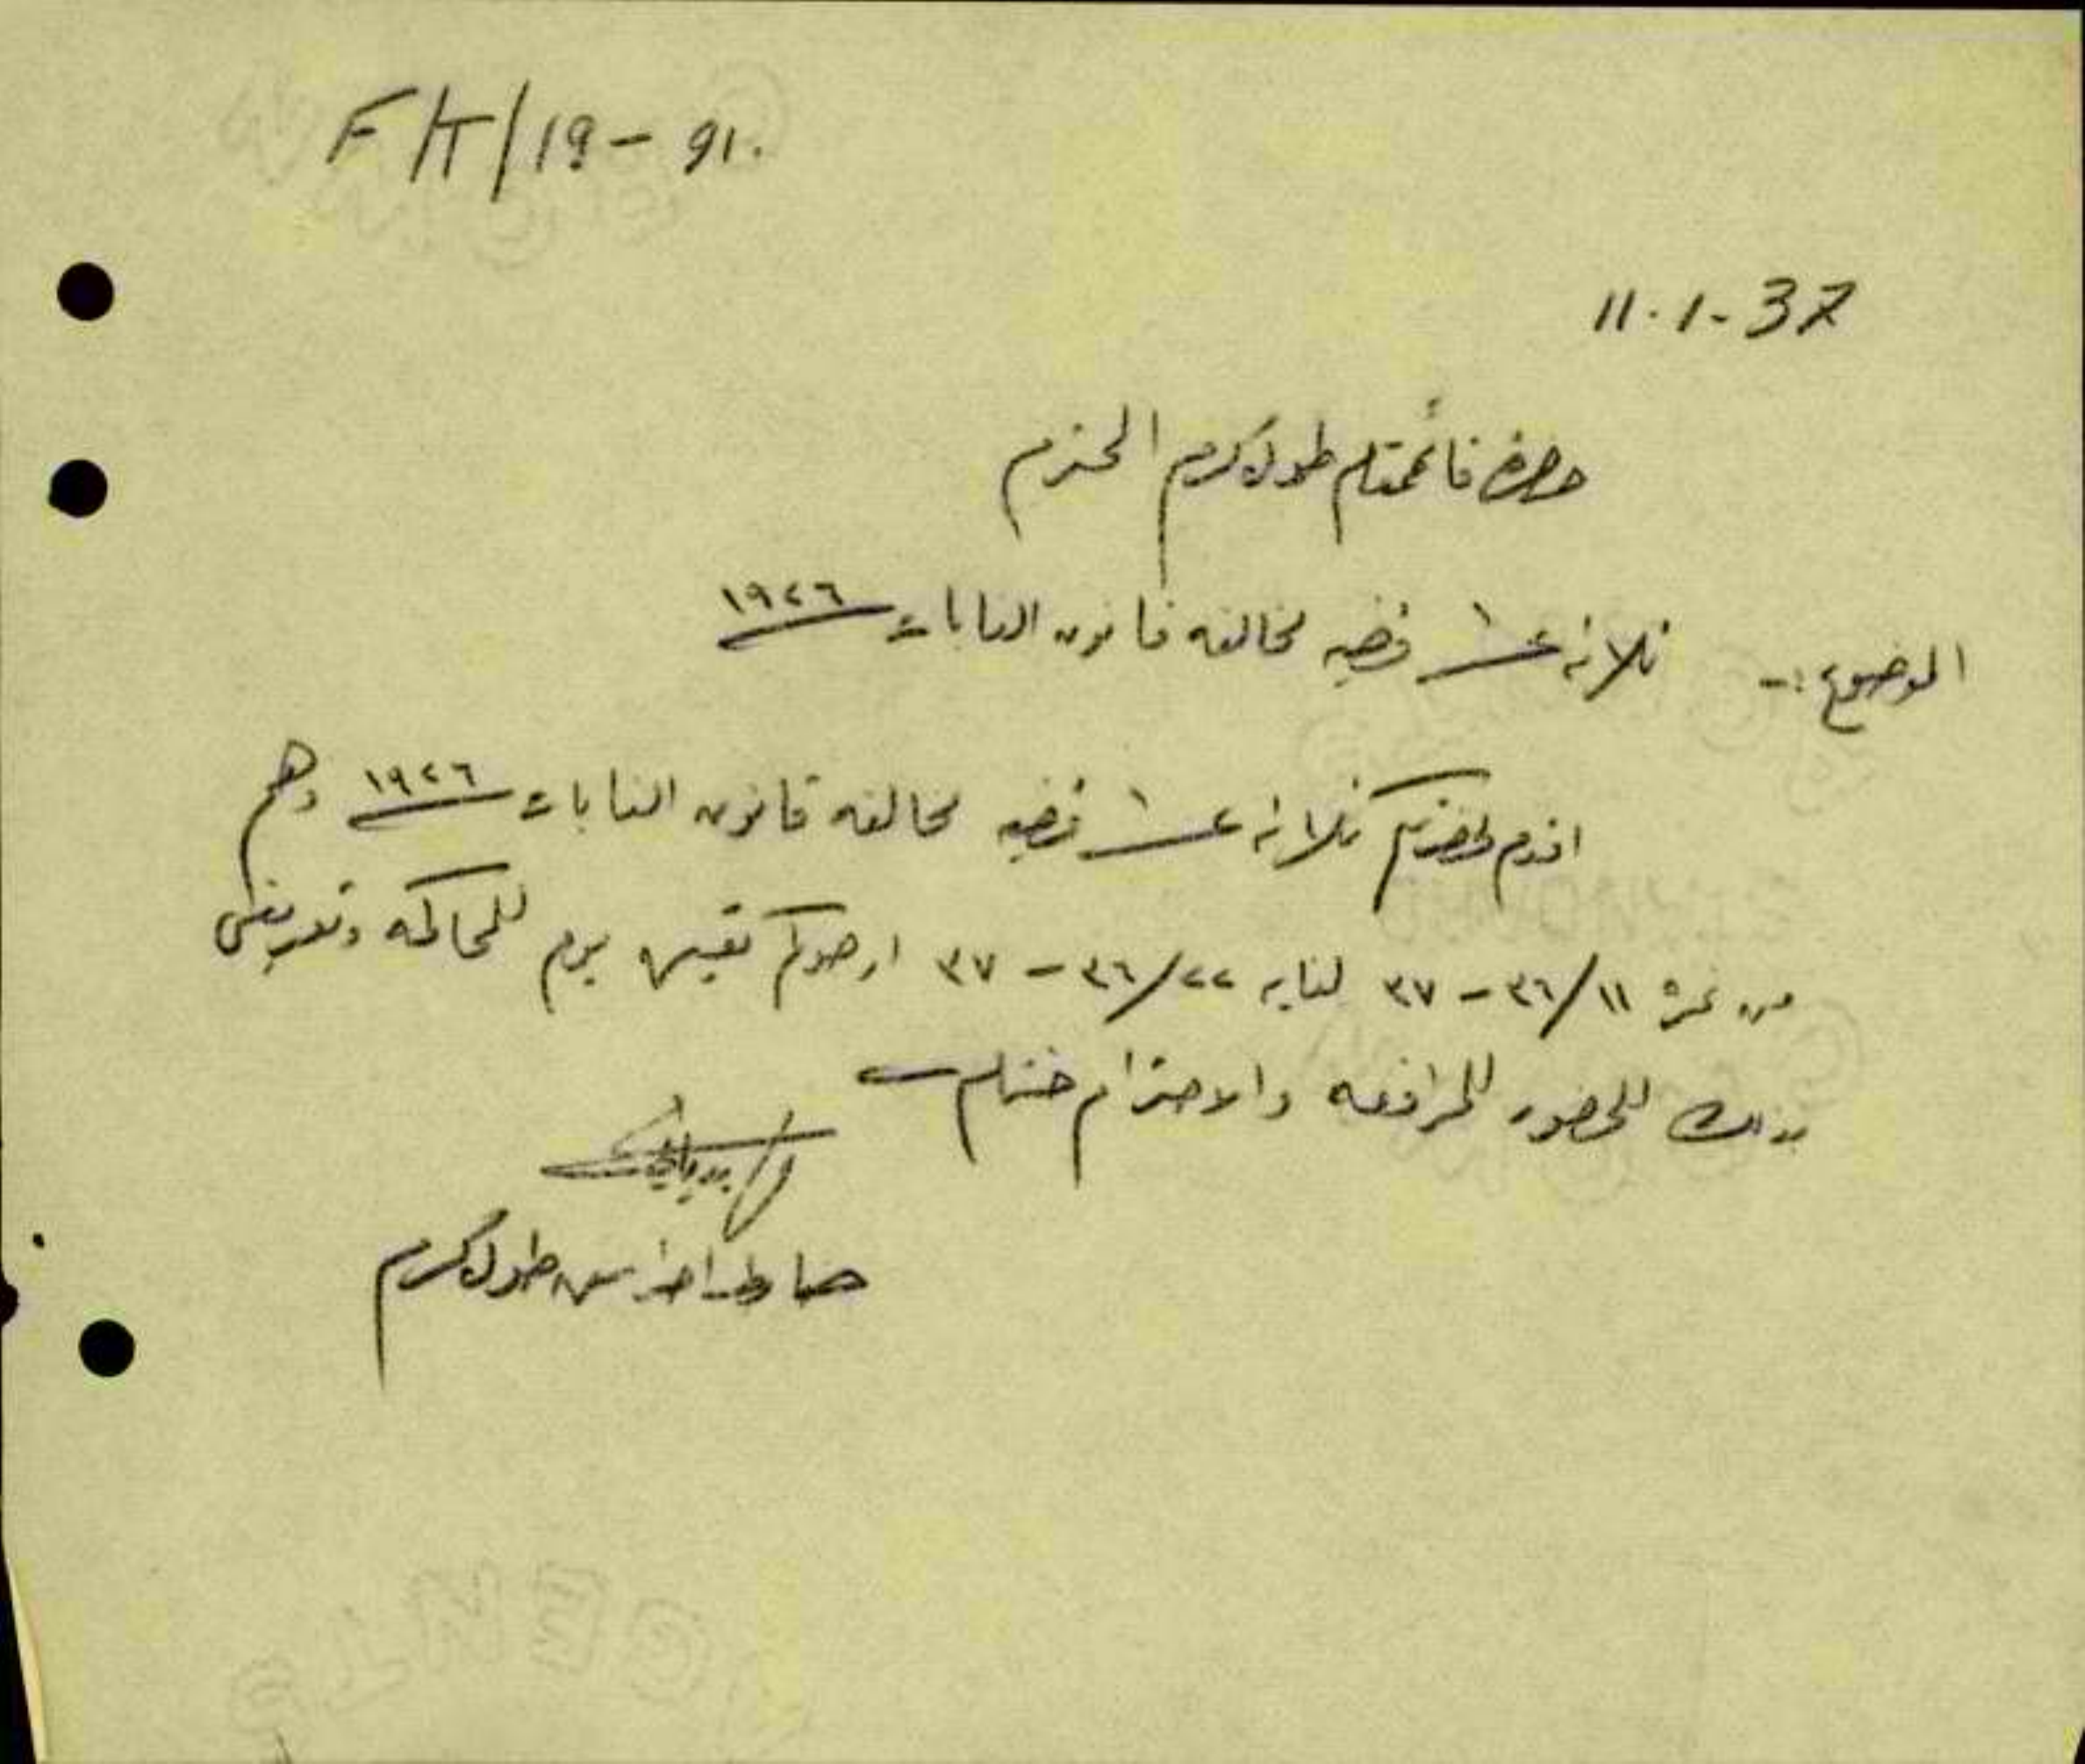 F/T/19-91.
11.1-37
حضرة قائمقام طولكرم المحترم
الموضوع :- ثلاثة عشر قضيه مخالفه قانون الغابات ١٩٢٦
اقدم لحضرتكم ثلاثة عشر قضيه مخالفه قانون الغابات ١٩٢٦ وهم
من نمرة ١١/٣٦-٣٧ لغاية ٢٢/٣٦-٣٧ ارجوكم تعيين يوم للمحاكمه وتعريفي
بذلك للحضور للمرافعه والاحترام ختام
ضابط احراش طولكرم